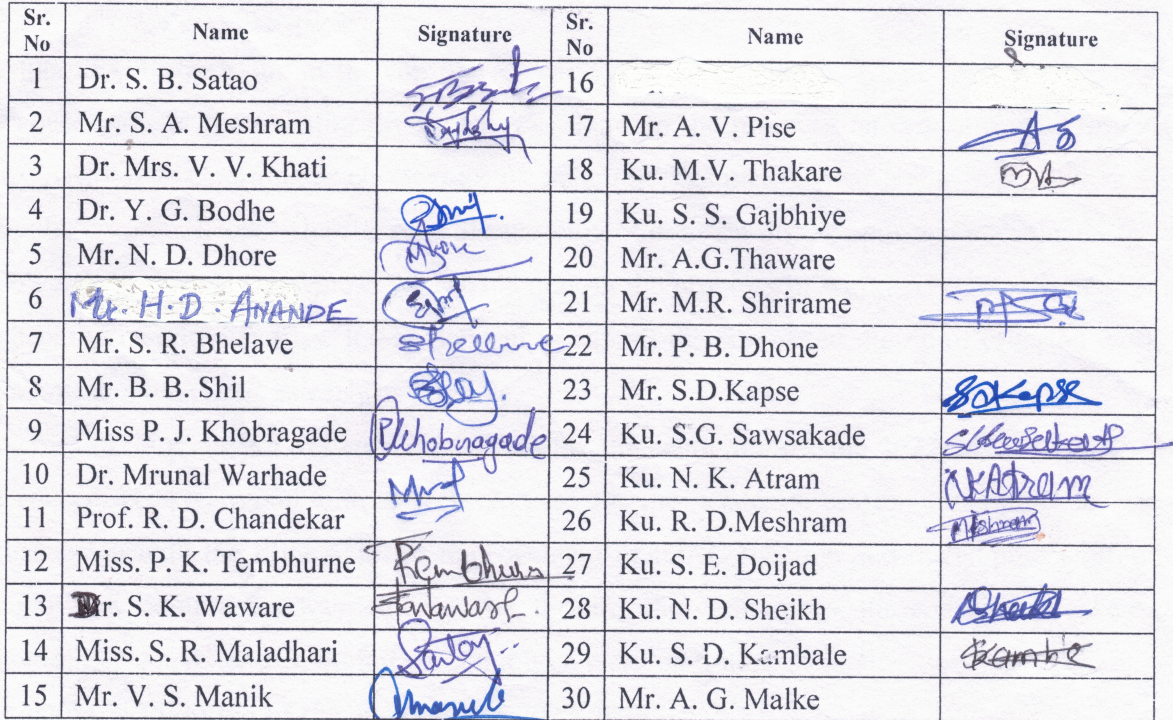 Sr. No Name Signature Sr. No Name Signature
1 Dr. S. B. Satao 16
2 Mr. S. A. Meshram 17 Mr. A. V. Pise
3 Dr. Mrs. V. V. Khati 18 Ku. M.V. Thakare
4 Dr. Y. G. Bodhe 19 Ku. S. S. Gajbhiye
5 Mr. N. D. Dhore Dhore 20 Mr. A.G.Thaware
6 Mr. H.D. ANANDE 21 Mr. M.R. Shrirame
7 Mr. S. R. Bhelave 22 Mr. P. B. Dhone
8 Mr. B. B. Shil 23 Mr. S.D.Kapse SDKapse
9 Miss P. J. Khobragade PKhobragade 24 Ku. S.G. Sawsakade
10 Dr. Mrunal Warhade 25 Ku. N. K. Atram NKAtram
11 Prof. R. D. Chandekar 26 Ku. R. D.Meshram Meshram
12 Miss. P. K. Tembhurne 27 Ku. S. E. Doijad
13 Dr. S. K. Waware 28 Ku. N. D. Sheikh
14 Miss. S. R. Maladhari 29 Ku. S. D. Kambale
15 Mr. V. S. Manik 30 Mr. A. G. Malke